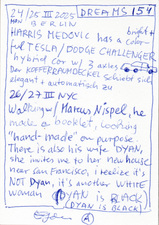 24/25 III 2025 DREAMS 154
BERLIN
HARRIS MEDOVIC has a bright + color-
ful TESLA/DODGE CHALLENGER
hybrid car w/ 3 axles
Der KOFFERRAUMDECKEL schiebt sich
elegant + automatisch zu
26/27 III NYC
Walking w/ Marcus Nispel, he
made a booklet, looking
"hand-made" on purpose
There is also his wife DYAN,
she invites me to her new house
near San Francisco, I realize it's
NOT Dyan, it's another WHITE
woman DYAN is BLACK
(DYAN is BLACK)
A